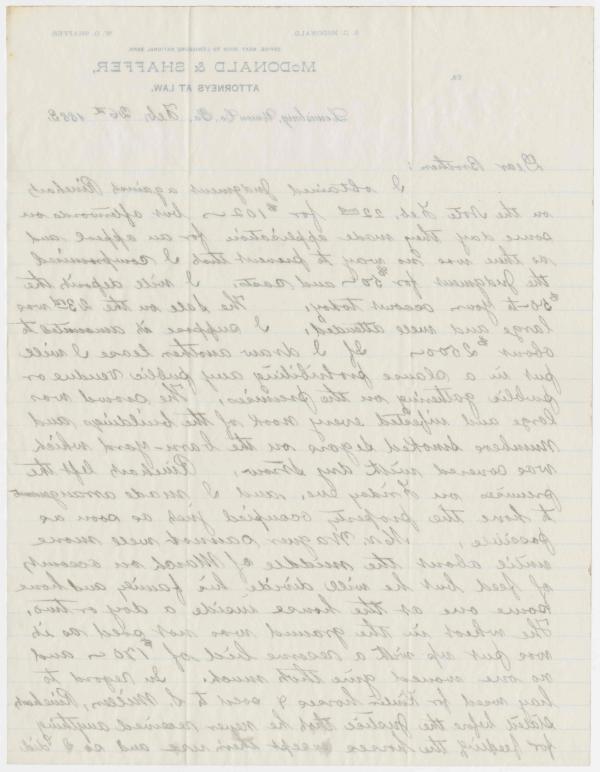 S. D. McDONALD W. D. SHAFFER
OFFICE NEXT DOOR TO LEWISBURG NATIONAL BANK
McDONALD & SHAFFER,
ATTORNEYS AT LAW.
Lewisburg, Union Co. Pa. Feb. 26th 1883.
Dear Brother:
I obtained Judgment against Rinehart
on the Note Feb. 22nd for $102— but afterwards on
same day they made application for an appeal and
as there was no way to prevent that I compromised
the Judgment for $50— and costs. I will deposit the
$50— to your account today. The Sale on the 23rd was
large and well attended, I suppose it amounted to
about $2000— If I draw another lease I will
put in a clause prohibiting any public vendue or
public gathering on the premises. The crowd was
large and infested every nook of the buildings and
numbers smoked segars on the barn-yard which
was covered with dry straw. Rinehart left the
premises on Friday eve, and, I made arrangements
to have the property occupied just as soon as
possible, Mr Wagner cannot well move
until about the middle of March on account
of feed but he will divide his family and have
some one at the house inside a day or two,
The wheat in the ground was not sold as it
was put up with a reserve bid of $120— and
no one would give that much. In regard to
hay used for Kohler horses & sold to S. Miller, Rinehart
stated before the Justice that he never received anything
for feeding the horses except their use and so I did